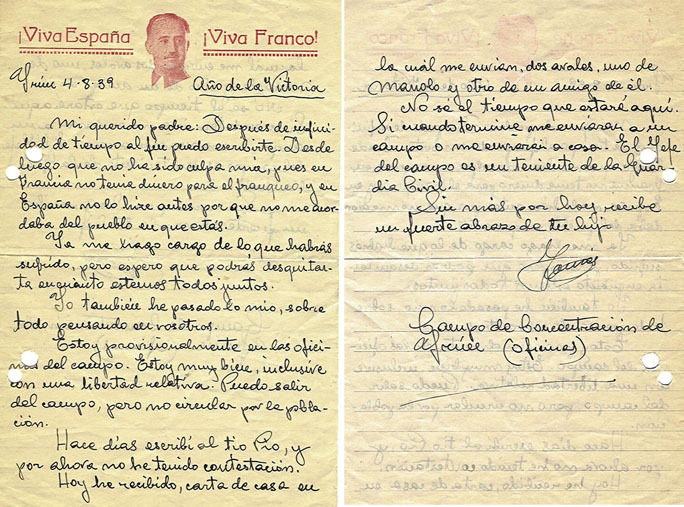 ¡Viva España ¡Viva Franco!
4-8-39 Año de la Victoria
Mi querido padre: Después de infini-
dad de tiempo al fin puedo escribirte. Desde
luego que no ha sido culpa mía, pues en
Francia no tenía dinero para el franqueo, y en
España no lo hize antes por que no me acor-
daba del pueblo en que estás.
Ya me hago cargo de lo que habrás
sufrido, pero espero que podrás desquitar-
te en cuanto estemos todos juntos.
Yo también he pasado lo mío, sobre
todo pensando en vosotros.
Estoy provisionalmente en las ofici-
nas del campo. Estoy muy bien, inclusive
con una libertad relativa. Puedo salir
del campo, pero no circular por la pobla-
ción.
Hace días escribí al tío Pío, y
por ahora no he tenido contestación.
Hoy he recibido, carta de casa en
la cuál me envían, dos avales, uno de
Manolo y otro de un amigo de él.
No sé el tiempo que estaré aquí.
Si cuando termine me enviarán a un
campo o me enviarán a casa. El Jefe
del campo es un teniente de la Guar-
dia Civil.
Sin más por hoy, recibe
un fuerte abrazo de tu hijo
Campo de Concentración de
(Oficinas)